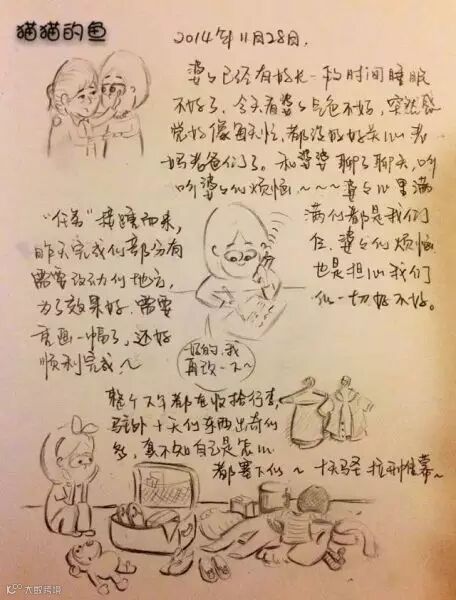 猫猫的鱼
2014年11月28日.
婆婆已经有好长一段时间睡眠
不好了、今天看婆婆气色不好，突然感
觉好像每天忙，都没好好关心老
妈老爸们了。和婆婆聊了聊天，听
听婆婆的烦恼～～～婆婆心里满
满的都是我们
仨、婆婆的烦恼
也是担心我们
的一切好不好。
“任务”接踵而来，
昨天完成的部分有
需要改动的地方，
为了效果好、需要
重画一幅了、还好
顺利完成～
好的、我
再改一下～
整个下午都在收拾行李，
驻外十天的东西出奇的
多，真不知自己是怎么
都塞下的～十天驻扎